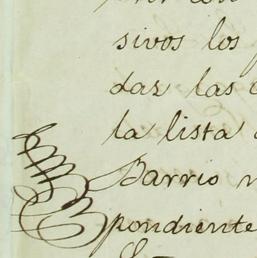 sivos los
das las
la lista
Barrio
pondiente